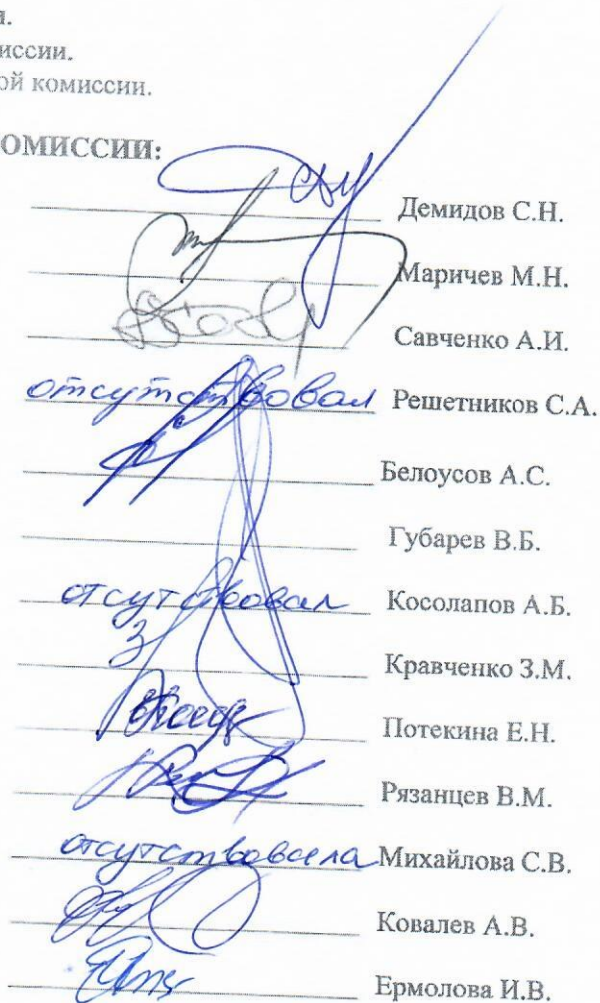 и.
иссии.
ой комиссии.
ОМИССИИ:
Демидов С.Н.
Маричев М.Н.
Савченко А.И.
отсутствовал Решетников С.А.
Белоусов А.С.
Губарев В.Б.
отсутствовал Косолапов А.Б.
Кравченко З.М.
Потекина Е.Н.
Рязанцев В.М.
отсутствовала Михайлова С.В.
Ковалев А.В.
Ермолова И.В.